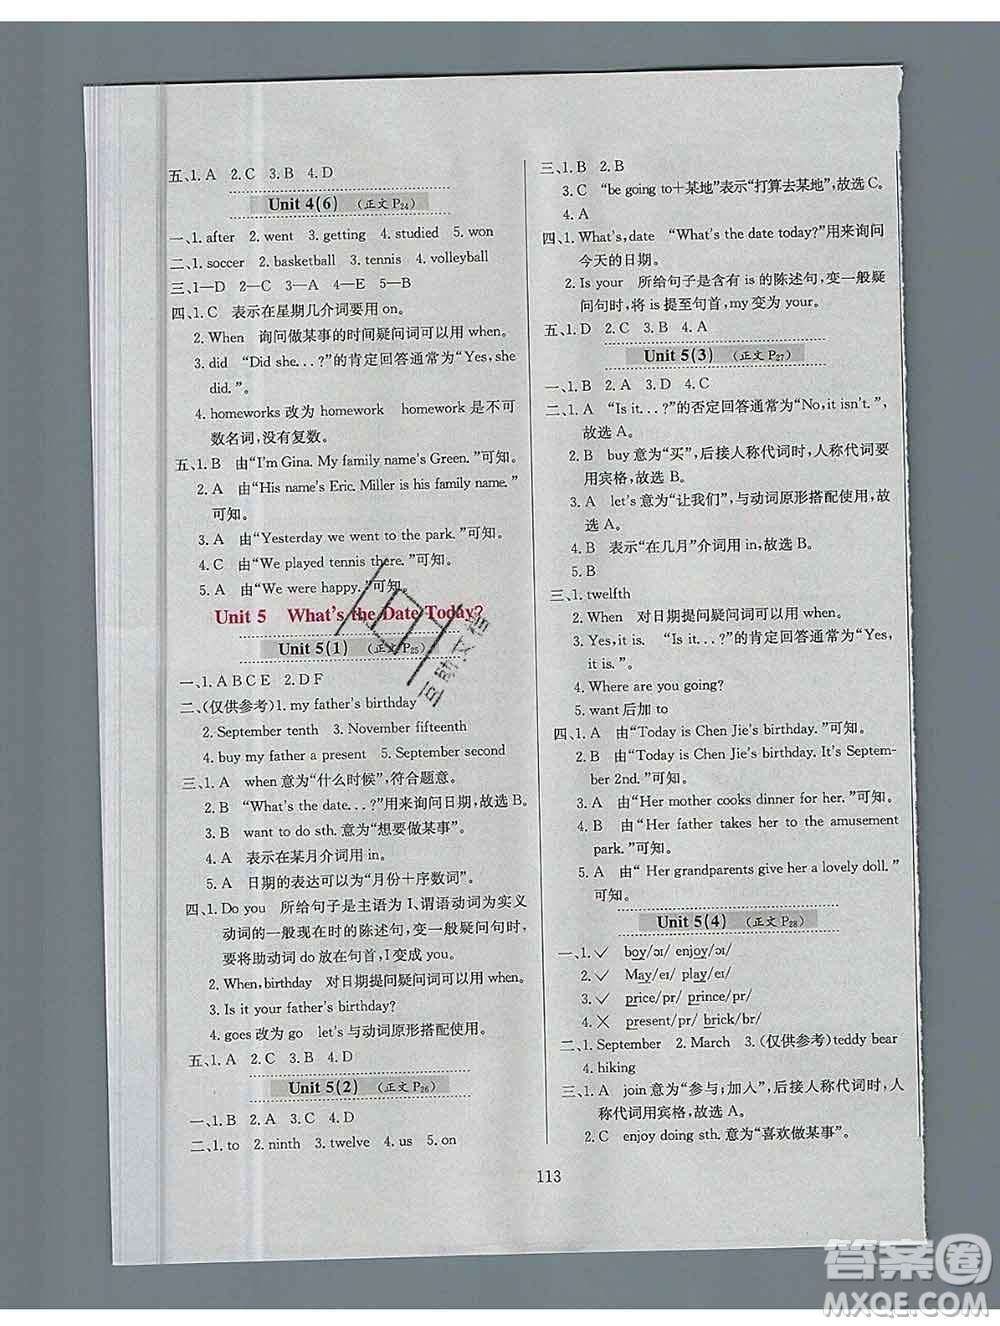 五、1. A　2. C　3. B　4. D
Unit 4(6)　(正文P24)
一、1. after　2. went　3. getting　4. studied　5. won
二、1. soccer　2. basketball　3. tennis　4. volleyball
三、1—D　2—C　3—A　4—E　5—B
四、1. C　表示在星期几介词要用 on。
2. When　询问做某事的时间疑问词可以用 when。
3. did　“Did she...?”的肯定回答通常为“Yes, she
did.”。
4. homeworks 改为 homework　homework 是不可
数名词,没有复数。
五、1. B　由“I'm Gina. My family name's Green.”可知。
2. A　由“His name's Eric. Miller is his family name.”
可知。
3. A　由“Yesterday we went to the park.”可知。
4. C　由“We played tennis there.”可知。
5. A　由“We were happy.”可知。
Unit 5　What's the Date Today?
Unit 5(1)　(正文P25)
一、1. A B C E　2. D F
二、(仅供参考)1. my father's birthday
2. September tenth　3. November fifteenth
4. buy my father a present　5. September second
三、1. A　when 意为“什么时候”,符合题意。
2. B　“What's the date...?”用来询问日期,故选 B。
3. B　want to do sth. 意为“想要做某事”。
4. A　表示在某月介词用 in。
5. A　日期的表达可以为“月份+序数词”。
四、1. Do you　所给句子是主语为 I,谓语动词为实义
动词的一般现在时的陈述句,变一般疑问句时,
要将助动词 do 放在句首,I 变成 you。
2. When, birthday　对日期提问疑问词可以用 when。
3. Is it your father's birthday?
4. goes 改为 go　let's 与动词原形搭配使用。
五、1. A　2. C　3. B　4. D
Unit 5(2)　(正文P26)
一、1. B　2. A　3. C　4. D
二、1. to　2. ninth　3. twelve　4. us　5. on
三、1. B　2. B
3. C　“be going to+某地”表示“打算去某地”,故选 C。
4. A
四、1. What's, date　“What's the date today?”用来询问
今天的日期。
2. Is your　所给句子是含有 is 的陈述句,变一般疑
问句时,将 is 提至句首,my 变为 your。
五、1. D　2. C　3. B　4. A
Unit 5(3)　(正文P27)
一、1. B　2. A　3. D　4. C
二、1. A　“Is it...?”的否定回答通常为“No, it isn't.”,
故选 A。
2. B　buy 意为“买”,后接人称代词时,人称代词要
用宾格,故选 B。
3. A　let's 意为“让我们”,与动词原形搭配使用,故
选 A。
4. B　表示“在几月”介词用 in,故选 B。
5. B
三、1. twelfth
2. When　对日期提问疑问词可以用 when。
3. Yes, it is.　“Is it...?”的肯定回答通常为“Yes,
it is.”。
4. Where are you going?
5. want 后加 to
四、1. A　由“Today is Chen Jie's birthday.”可知。
2. B　由“Today is Chen Jie's birthday. It's Septem-
ber 2nd.”可知。
3. A　由“Her mother cooks dinner for her.”可知。
4. B　由“Her father takes her to the amusement
park.”可知。
5. A　由“Her grandparents give her a lovely doll.”
可知。
Unit 5(4)　(正文P28)
一、1. ✓　boy/ɔɪ/ enjoy/ɔɪ/
2. ✓　May/eɪ/ play/eɪ/
3. ✓　price/pr/ prince/pr/
4. ✕　present/pr/ brick/br/
二、1. September　2. March　3. (仅供参考)teddy bear
4. hiking
三、1. A　join 意为“参与;加入”,后接人称代词时,人
称代词用宾格,故选 A。
2. C　enjoy doing sth. 意为“喜欢做某事”。
113
答案圈
MXQE.COM